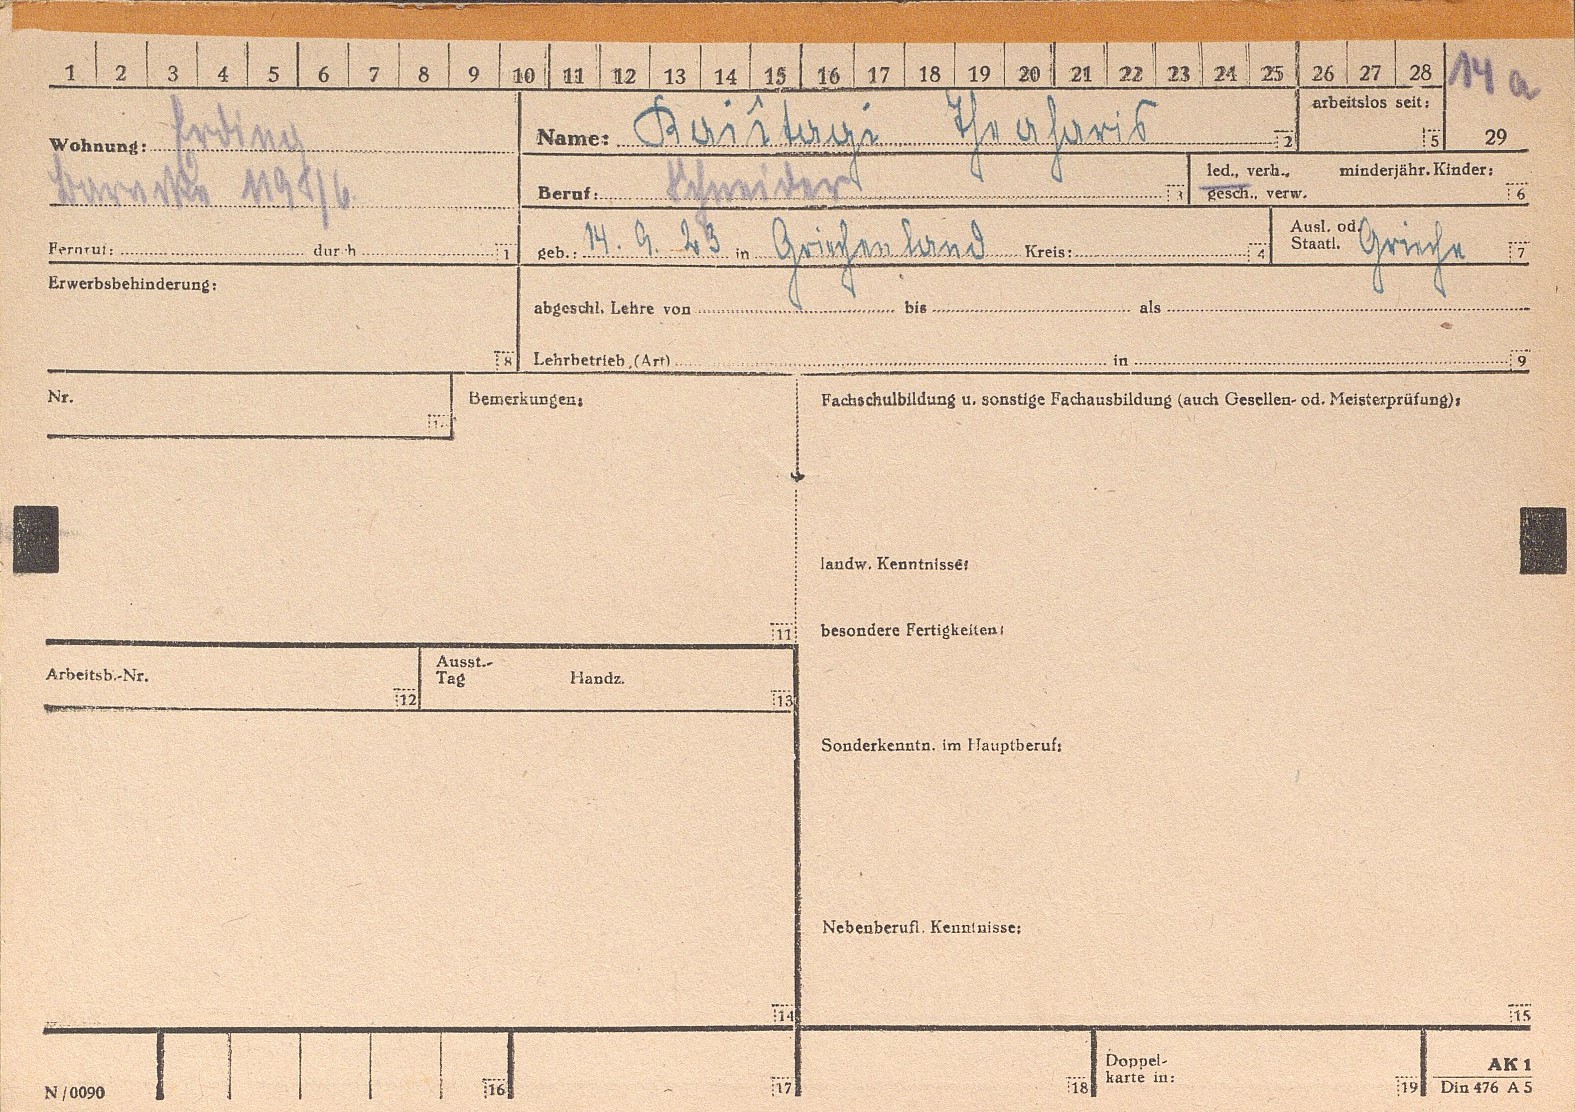 1 2 3 4 5 6 7 8 9 10 11 12 13 14 15 16 17 18 19 20 21 22 23 24 25 26 27 28 14 a
Wohnung: Erding
Baracke 1198/6.
Fernruf: durch 1
Name: Theoharis 2
arbeitslos seit: 5
29
Beruf: Schneider 3
led., verh., minderjähr. Kinder:
gesch., verw. 6
geb.: 14. 9. 23 in Griechenland Kreis: 4
Ausl. od.
Staatl. Grieche 7
Erwerbsbehinderung: 8
abgeschl. Lehre von bis als
Lehrbetrieb (Art) in 9
Nr.
Bemerkungen: 11
Fachschulbildung u. sonstige Fachausbildung (auch Gesellen- od. Meisterprüfung):
landw. Kenntnisse:
besondere Fertigkeiten:
Arbeitsb.-Nr. 12
Ausst.-
Tag Handz. 13
Sonderkenntn. im Hauptberuf:
Nebenberufl. Kenntnisse:
14 15
N/0090 16 17 18
Doppel-
karte in: 19
AK 1
Din 476 A 5